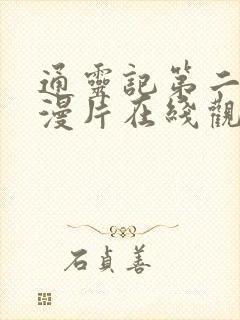 通靈記第二
漫片在綫觀
石貞善